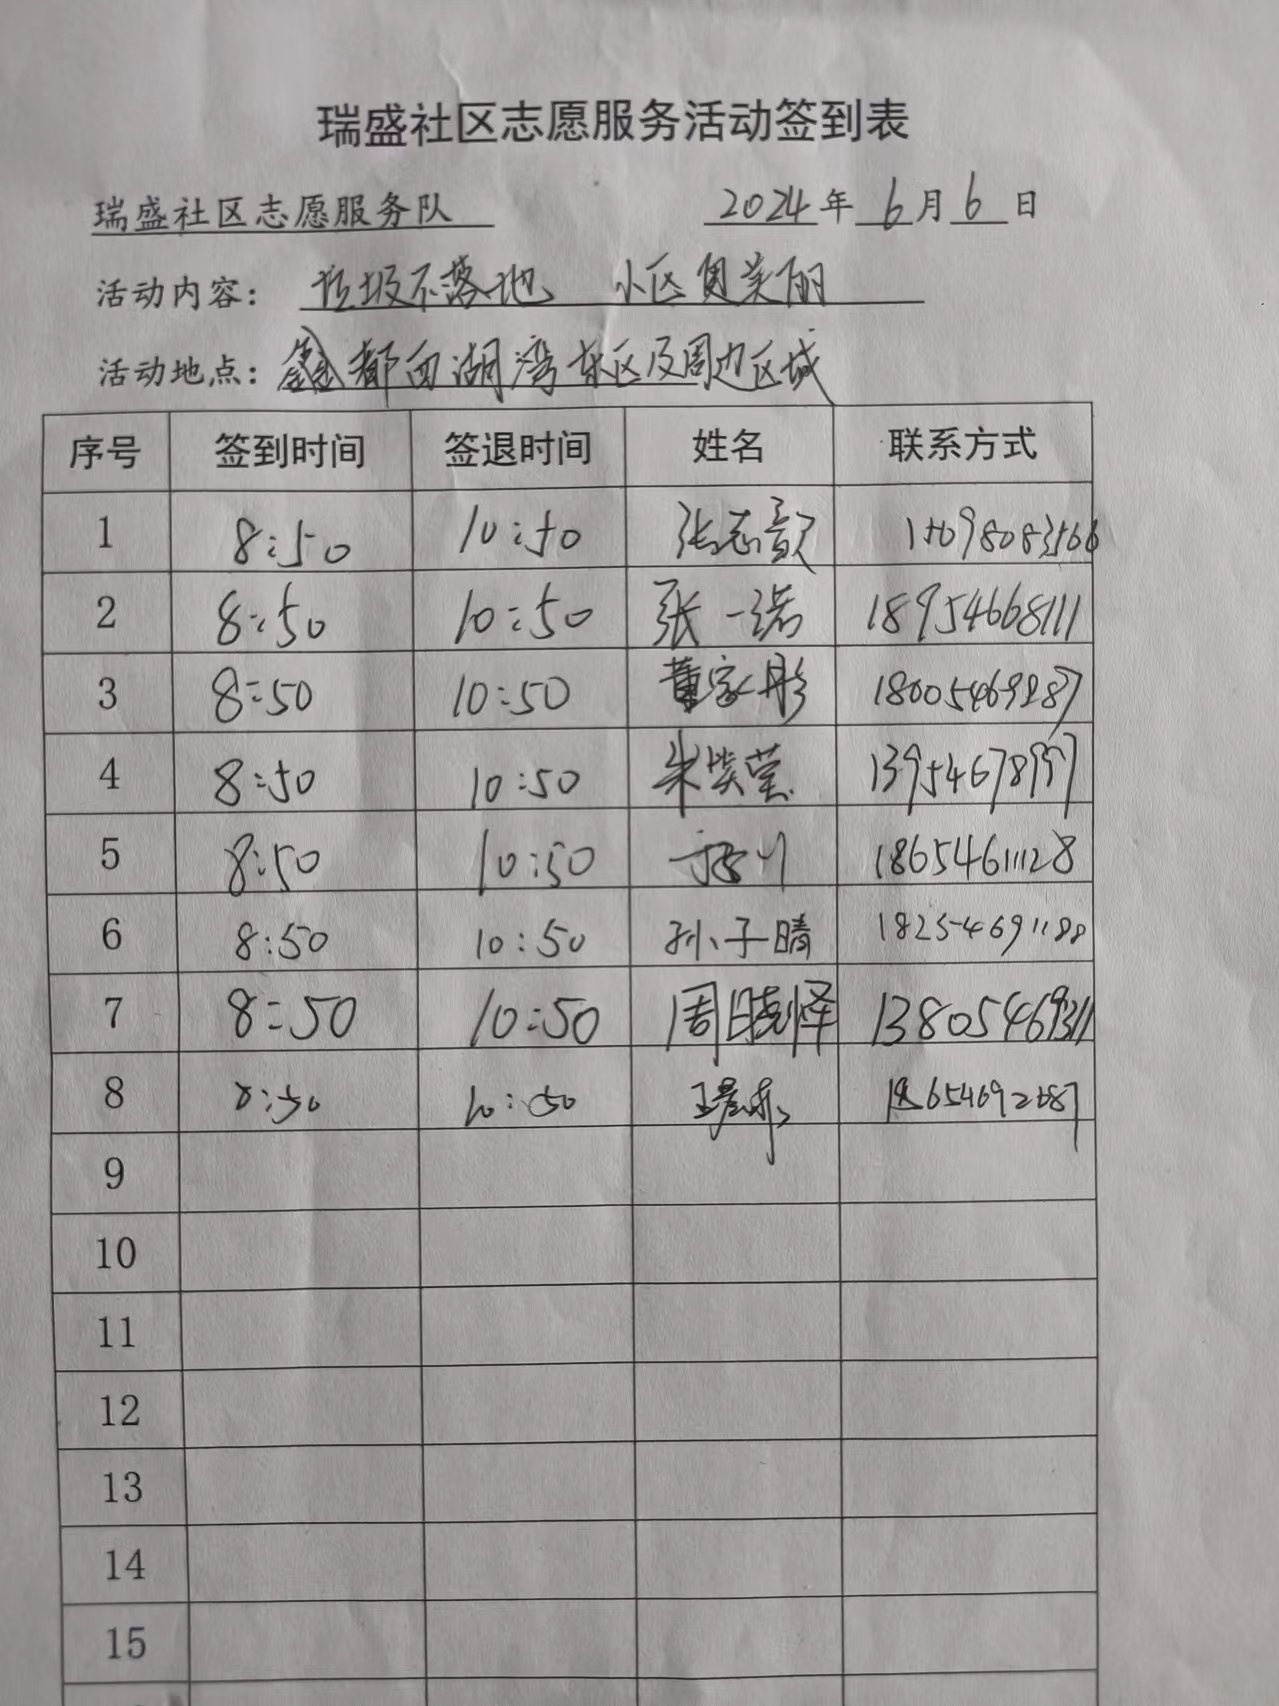 瑞盛社区志愿服务活动签到表
瑞盛社区志愿服务队 2024年 6月 6日
活动内容: 垃圾不落地 小区更美丽
活动地点: 鑫都西湖湾东区及周边区域
序号 签到时间 签退时间 姓名 联系方式
1 8:50 10:50 张志歆
2 8:50 10:50 张一诺 18954668111
3 8:50 10:50 董家彤 18005469287
4 8:50 10:50 朱
5 8:50 10:50 18654611128
6 8:50 10:50 孙子晴 18254691188
7 8:50 10:50 周晓怿 13805469311
8 8:50 10:50
9
10
11
12
13
14
15